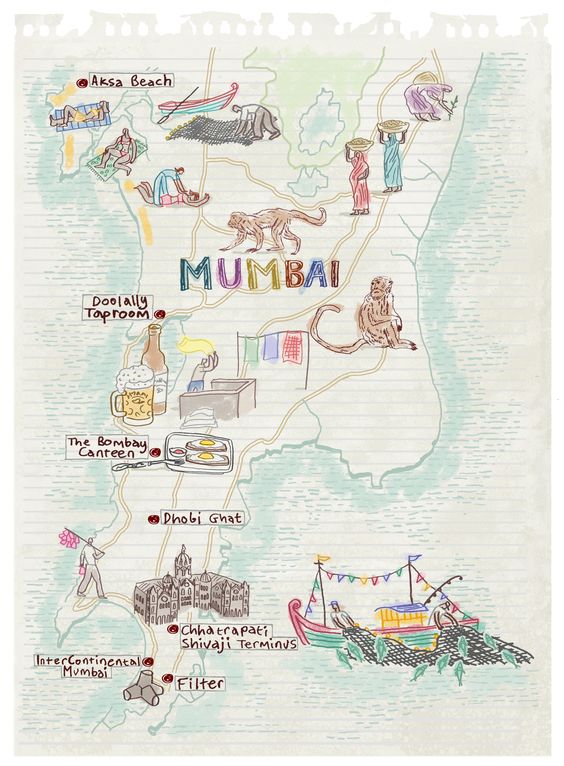 Aksa Beach
MUMBAI
Doolally
Taproom
The Bombay
Canteen
Dhobi Ghat
Chhatrapati
Shivaji Terminus
InterContinental
Mumbai
Filter